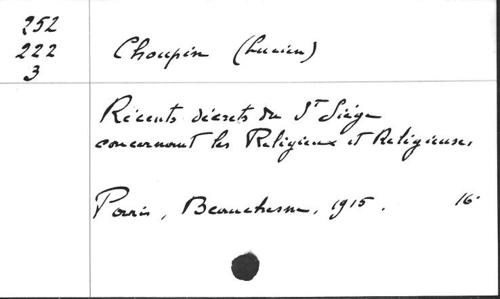 252
222
3
Choupin (Lucien)
Récents décrets du St Siège
concernant les Religieux et Religieuses.
Paris, Beauchesne, 1915. 16°